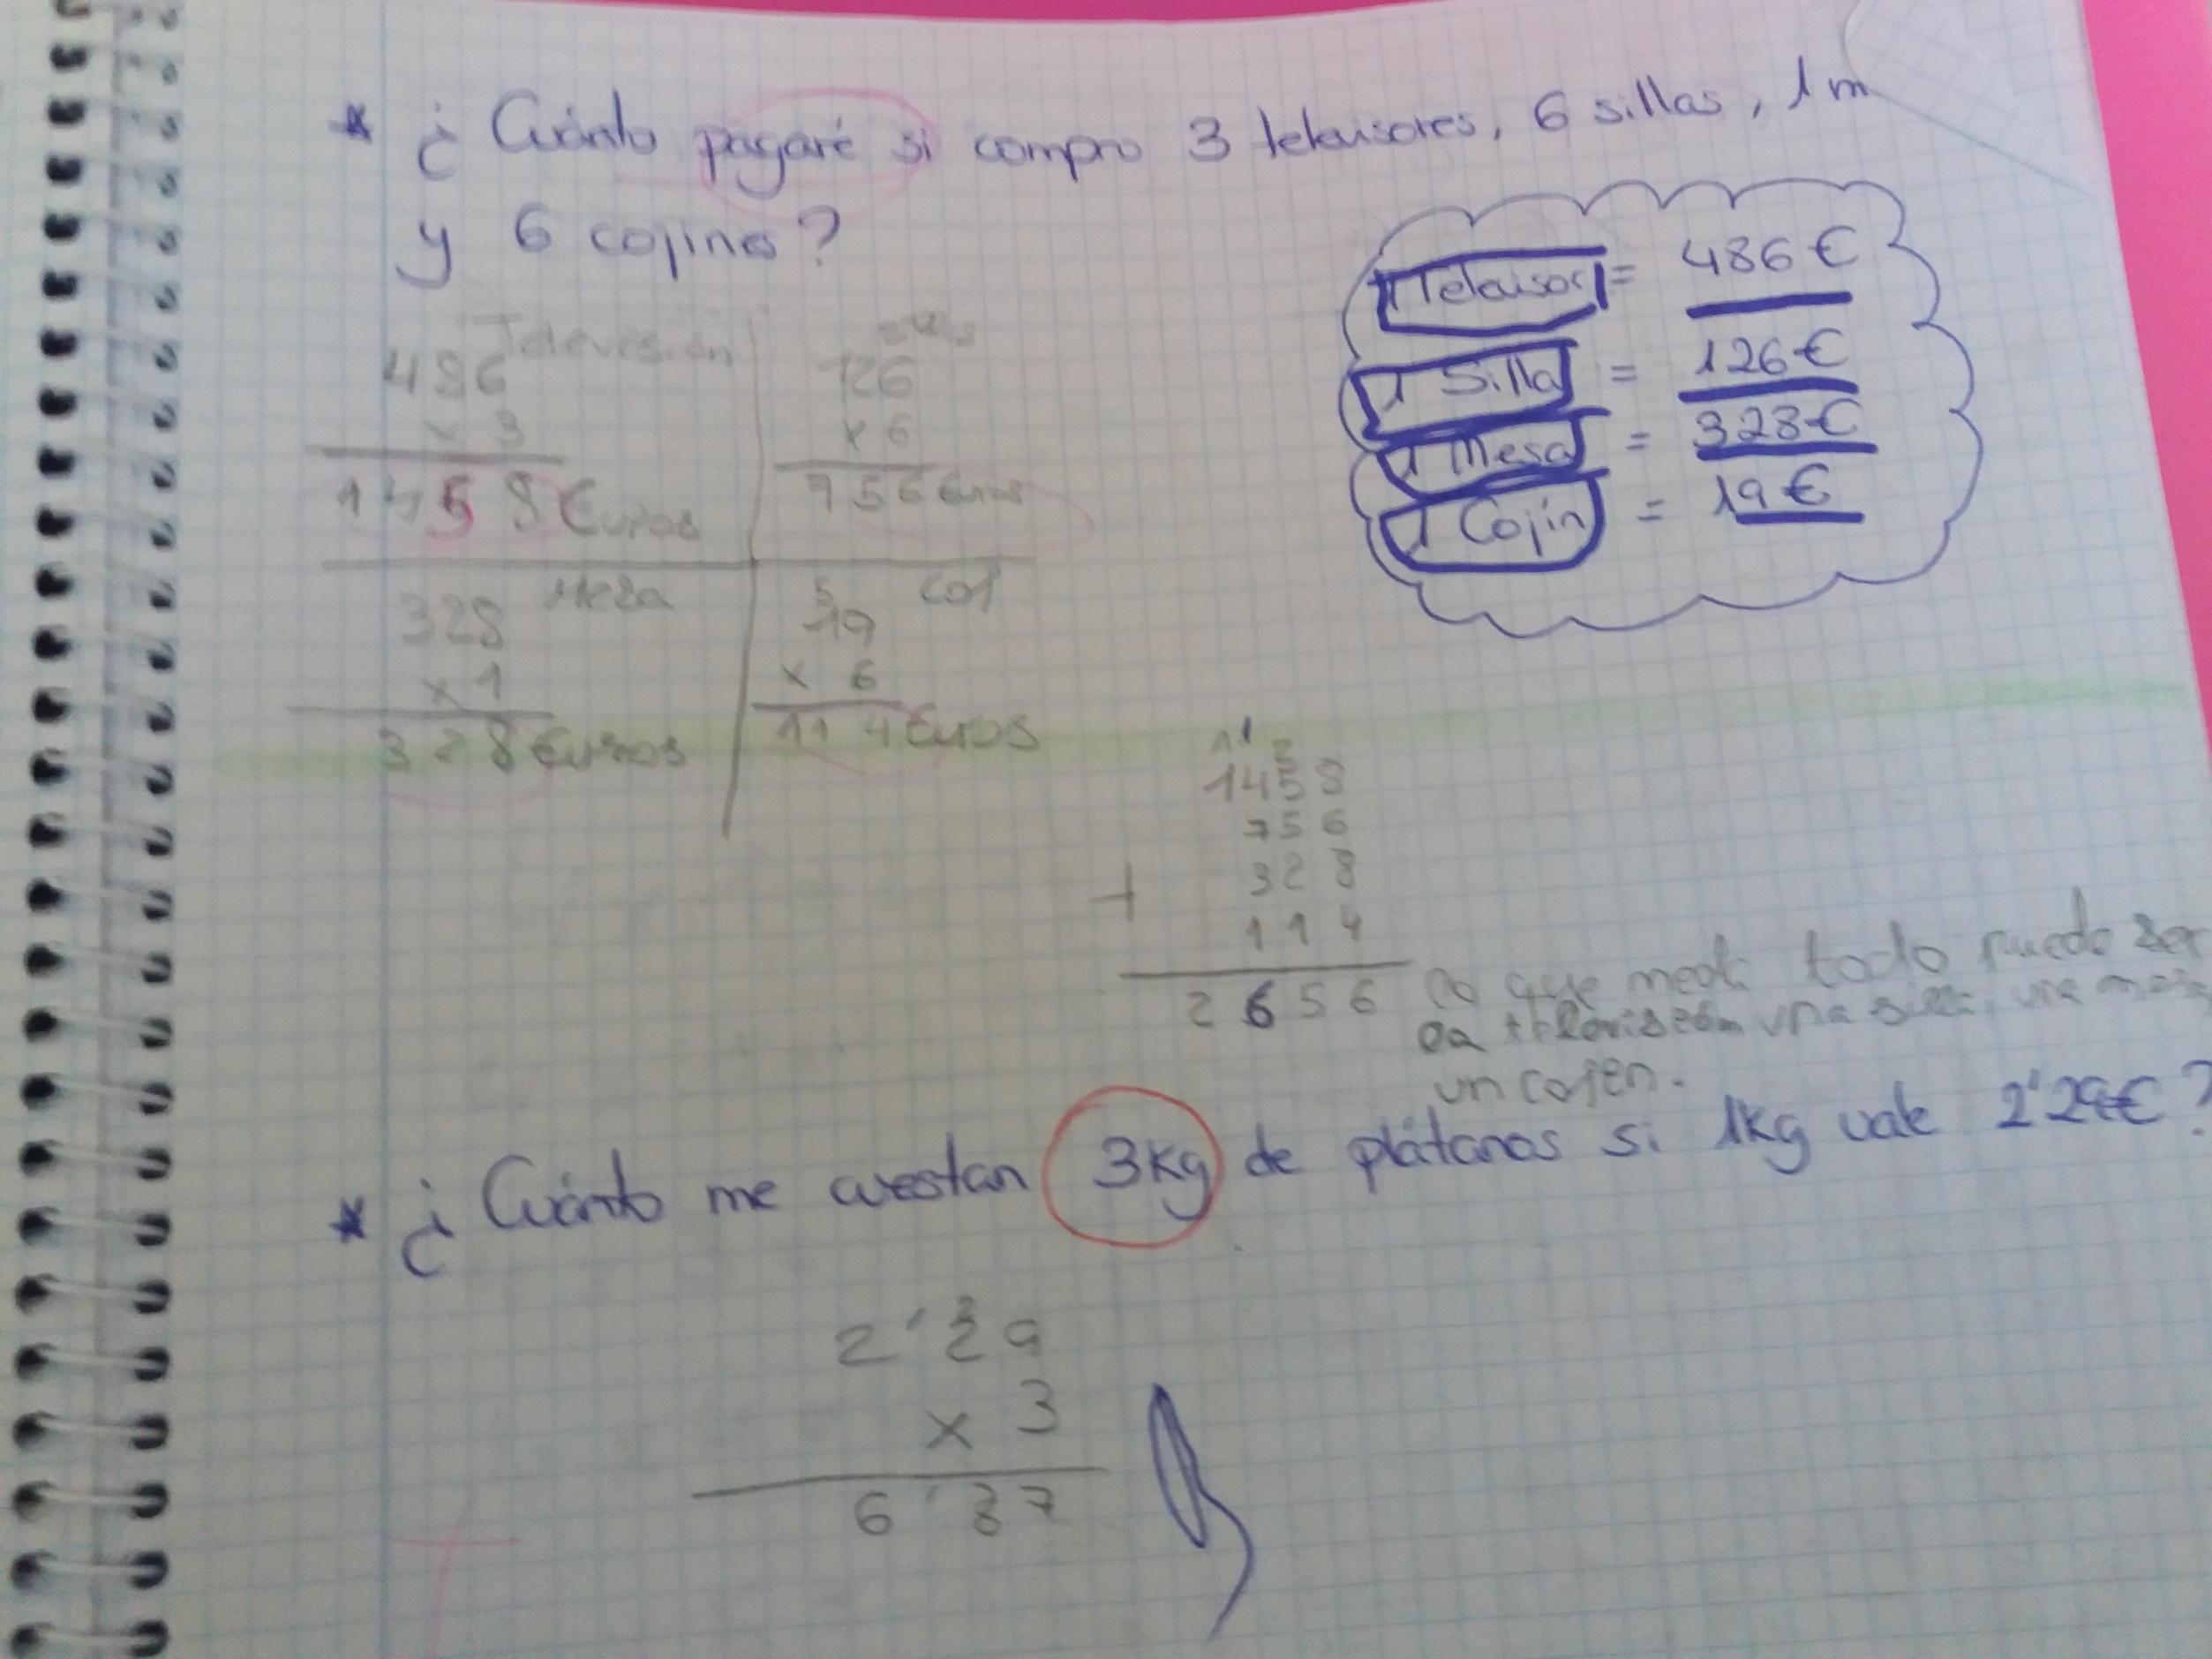 * ¿Cuánto pagaré si compro 3 televisores, 6 sillas, 1 m
y 6 cojines?
1 Televisor = 486€
1 Silla = 126€
1 Mesa = 328€
1 Cojín = 19€
Televesión
486
x 3
1458 Euros
sillas
126
x 6
756 Euros
Mesa
328
x 1
328 Euros
5 COJ
19
x 6
114 Euros
11 2
1458
756
328
+
114
2656
Lo que mede todo puede ser
la televisión una silla, una mesa
un cojen.
* ¿Cuánto me cuestan 3kg de plátanos si 1kg vale 2'29€?
2
2'29
x 3
6'87